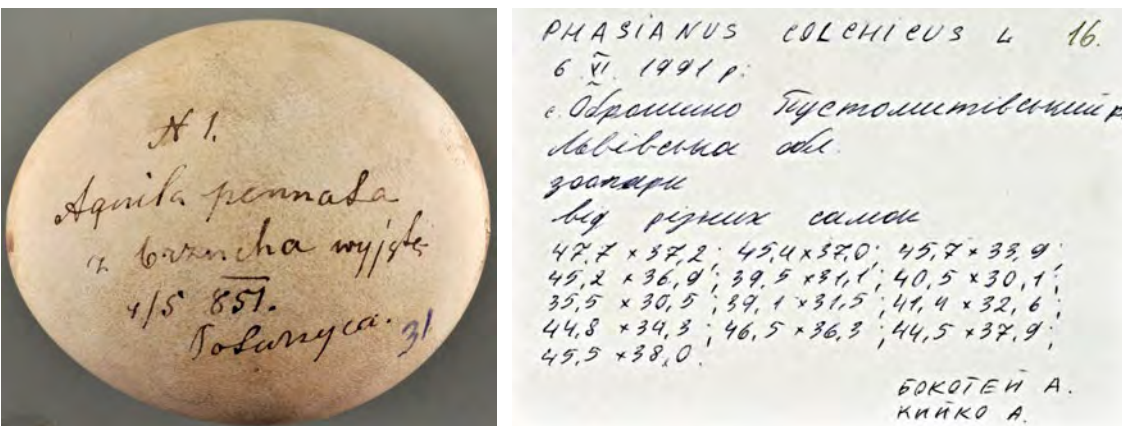 N 1.
Aquila pennata
z brzucha wyjęte
4/5 851.
31
PHASIANUS COLCHICUS L 16.
6 VI. 1991 р.
с. Оброшино Пустомитівський р
Львівська обл.
зоопарк
від різних самок
47,7 × 37,2; 45,4 × 37,0; 45,7 × 33,9;
45,2 × 36,9; 39,5 × 31,1; 40,5 × 30,1;
35,5 × 30,5; 39,1 × 31,5; 41,4 × 32,6;
44,8 × 34,3; 46,5 × 36,3; 44,5 × 37,9;
45,5 × 38,0.
БОКОТЕЙ А.
КИЙКО А.